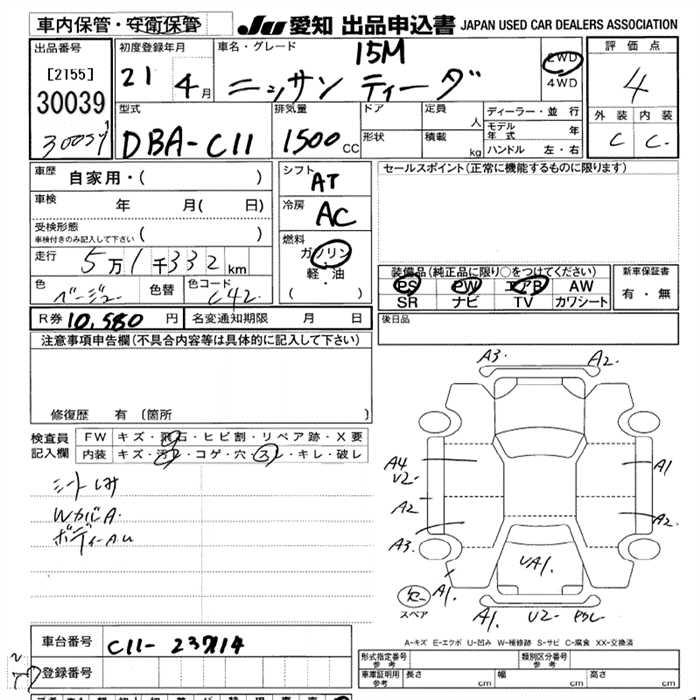 車内保管・守衛保管 JU 愛知 出品申込書 JAPAN USED CAR DEALERS ASSOCIATION
出品番号 初度登録年月 車名・グレード 15M 2WD 評価点
[2155] 21 4月 ニッサン ティーダ 4WD 4
30039 型式 排気量 ドア 定員 人 ディーラー・並行 外装 内装
DBA-C11 1500CC 形状 積載 kg モデル年式 年 C C
ハンドル 左・右
車歴 自家用・( ) シフト AT セールスポイント(正常に機能するものに限ります)
車検 年 月( 日) 冷房 AC
受検形態 車検付きのみ記入して下さい ( )
走行 5万1千332km 燃料 ガソリン・軽・油 ( )
色 ベージュ 色替 色コード C42 装備品(純正品に限り○をつけてください) 新車保証書
PS PW エアB AW 有・無
SR ナビ TV カワシート
R券 10,580円 名変通知期限 月 日 後日品
注意事項申告欄(不具合内容等は具体的に記入して下さい)
修復歴 有 (箇所 )
検査員記入欄 FW キズ・飛石・ヒビ割・リペア跡・X要
内装 キズ・汚れ・コゲ・穴・スレ・キレ・破レ
WカバA
ボディーAU
A3. A2.
A4 A1
U2.
A2 A2.
A3.
UA1.
A1.
スペア
A1. U2-
A-キズ E-エクボ U-凹み W-補修跡 S-サビ C-腐食 XX-交換済
車台番号 C11-237114
登録番号
形式指定番号 参考 類別区分番号 参考
車庫証明用 参考 長さ cm 幅 cm 高さ cm